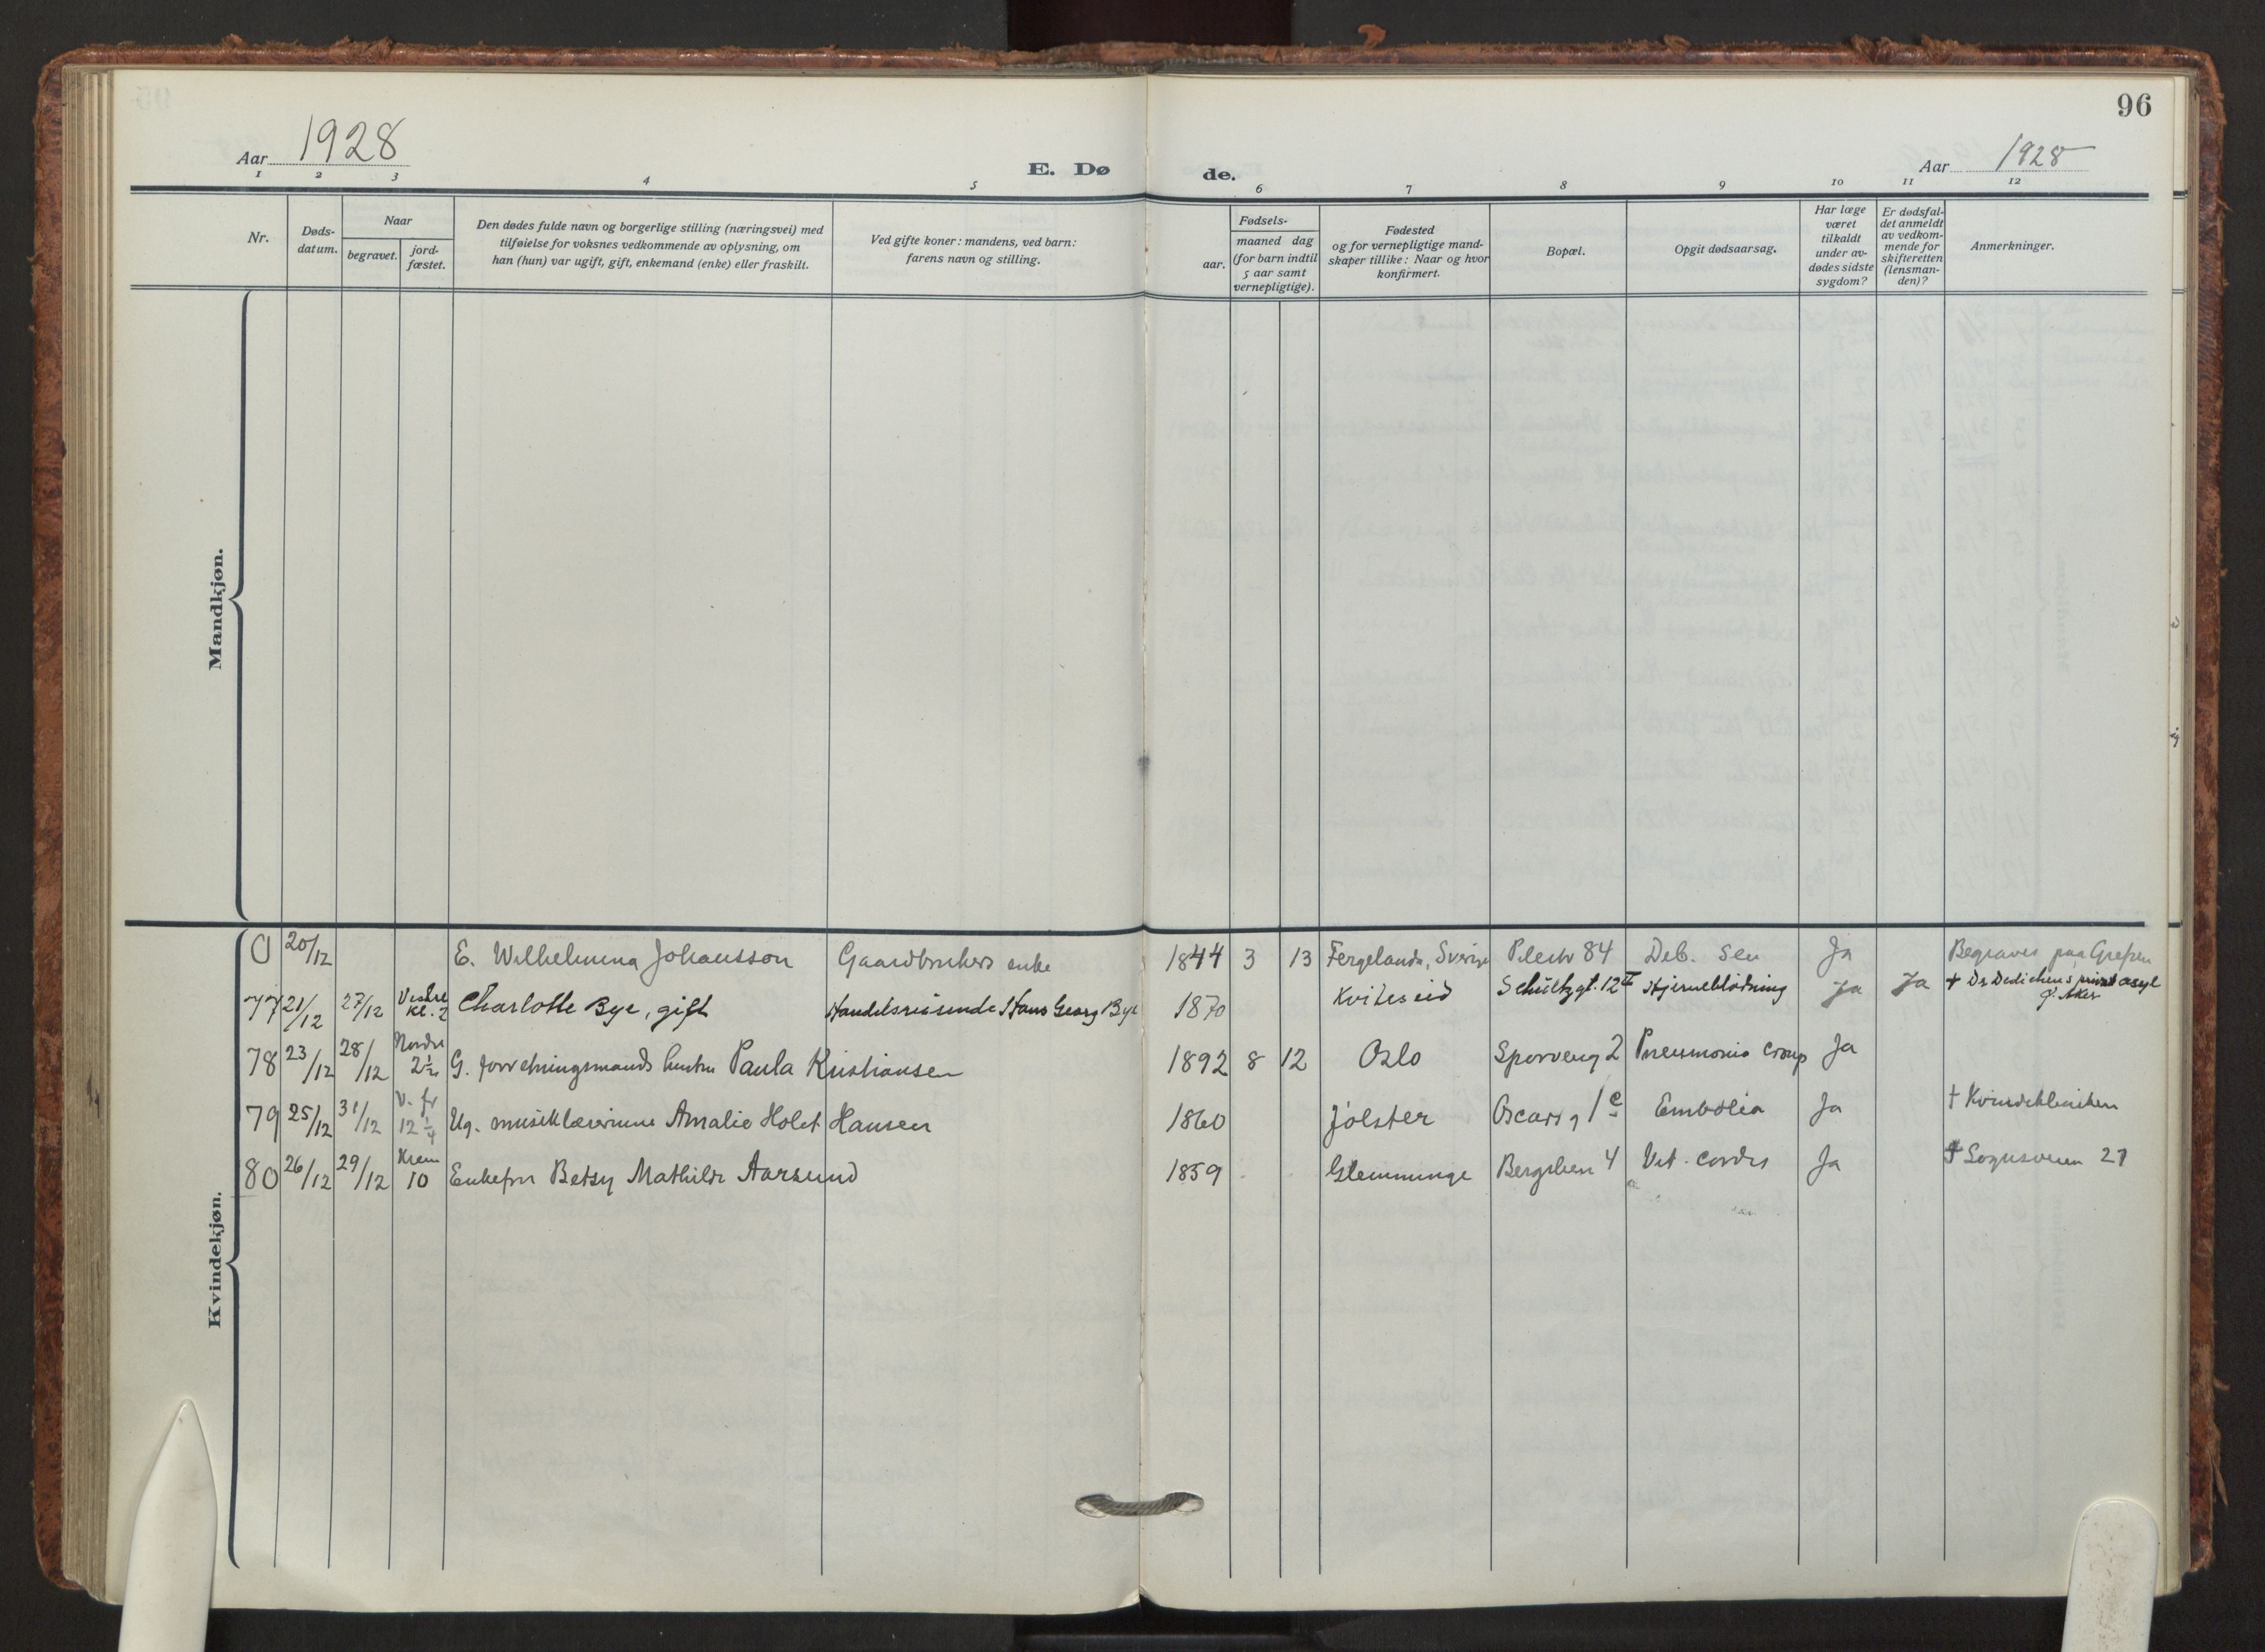 96
Aar 1928
E. Dø
de.
Aar 1928
1 2 3 4 5 6 7 8 9 10 11 12
Nr.
Døds-
datum.
Naar
begravet.
jord-
fæstet.
Den dødes fulde navn og borgerlige stilling (næringsvei) med
tilføielse for voksnes vedkommende av oplysning, om
han (hun) var ugift, gift, enkemand (enke) eller fraskilt.
Ved gifte koner: mandens, ved barn:
farens navn og stilling.
Fødsels-
aar.
maaned dag
(for barn indtil
5 aar samt
vernepligtige).
Fødested
og for vernepligtige mand-
skaper tillike: Naar og hvor
konfirmert.
Bopæl.
Opgit dødsaarsag.
Har læge
været
tilkaldt
under av-
dødes sidste
sygdom?
Er dødsfal-
det anmeldt
av vedkom-
mende for
skifteretten
(lensman-
den)?
Anmerkninger.
Mandkjøn.
Kvindekjøn.
0 20/12 E. Wilhelmina Johansson Gaardbrukers enke 1844 3 13 Fergelanda, Sverige Pilestr 84 Deb. sen Ja Begraves paa Grefsen
77 21/12 27/12 Vestre kl. 2 Charlotte Bye, gift Handelsreisende Hans Georg Bye 1870 Kviteseid Schültzgt. 12 II Hjerneblødning Ja Ja † Dr Dedichens privat asyl
Ø. Aker
78 23/12 28/12 Nordre 2½ G. forretningsmands hustru Paula Kristiansen 1892 8 12 Oslo Sporveisg 2 Pneumonia croup Ja
79 25/12 31/12 V. fr 12¼ Ug. musiklærerinne Amalie Holst Hansen 1860 Jølster Oscars g 1 c Embolia Ja † Kvindeklinikken
80 26/12 29/12 Krem 10 Enkefru Betsy Mathilde Aarsund 1859 Glemminge Bergslien 4 Vit. cordis Ja † Sognsveien 21